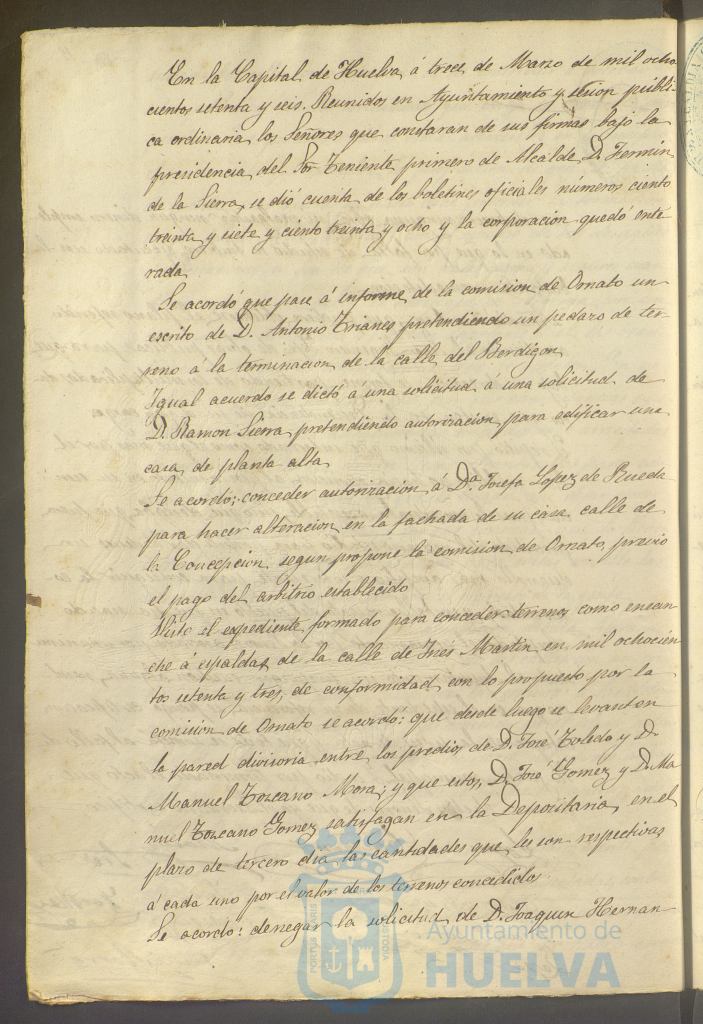 En la Capital de Huelva, á trece de Marzo de mil ocho
cientos setenta y seis. Reunidos en Ayuntamiento y sesion públi-
ca ordinaria los Señores que constaran de sus firmas bajo la
presidencia del Sor Teniente primero de Alcalde D. Fermin
de la Sierra, se dió cuenta de los boletines oficiales números ciento
treinta y siete y ciento treinta y ocho y la corporacion quedó ente
rada
Se acordó que pase á informe de la comision de Ornato un
escrito de D. Antonio Trianes pretendiendo un pedazo de ter-
reno á la terminacion de la calle del Berdigon
Igual acuerdo se dictó á una solicitud á una solicitud de
D. Ramon Sierra pretendiendo autorizacion para edificar una
casa de planta alta
Se acordó: conceder autorizacion á Da. Josefa Lopez de Rueda
para hacer alteracion en la fachada de su casa calle de
la Concepcion, segun propone la comision de Ornato, previo
el pago del arbitrio establecido
Visto el expediente formado para conceder terrenos como ensan
che á espaldas de la calle de Inés Martin en mil ochocien
tos setenta y tres, de conformidad con lo propuesto por la
comision de Ornato se acordó: que desde luego se levanten
la pared divisoria entre los predios de D. José Toledo y D.
Manuel Toscano Mora; y que estos, D. José Gomez y D. Ma
nuel Toscano Gomez satisfagan en la Depositaria, en el
plazo de tercero dia las cantidades que les son respectivas
á cada uno por el valor de los terrenos concedidos.
Se acordó: denegar la solicitud de D. Joaquin Hernan
Ayuntamiento de
HUELVA